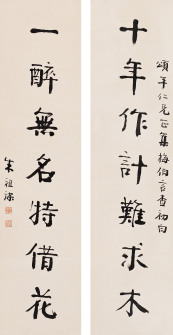 十年作計難求木
頌年仁兄正集梅伯言查初白
一醉無名特借花
朱祖謀